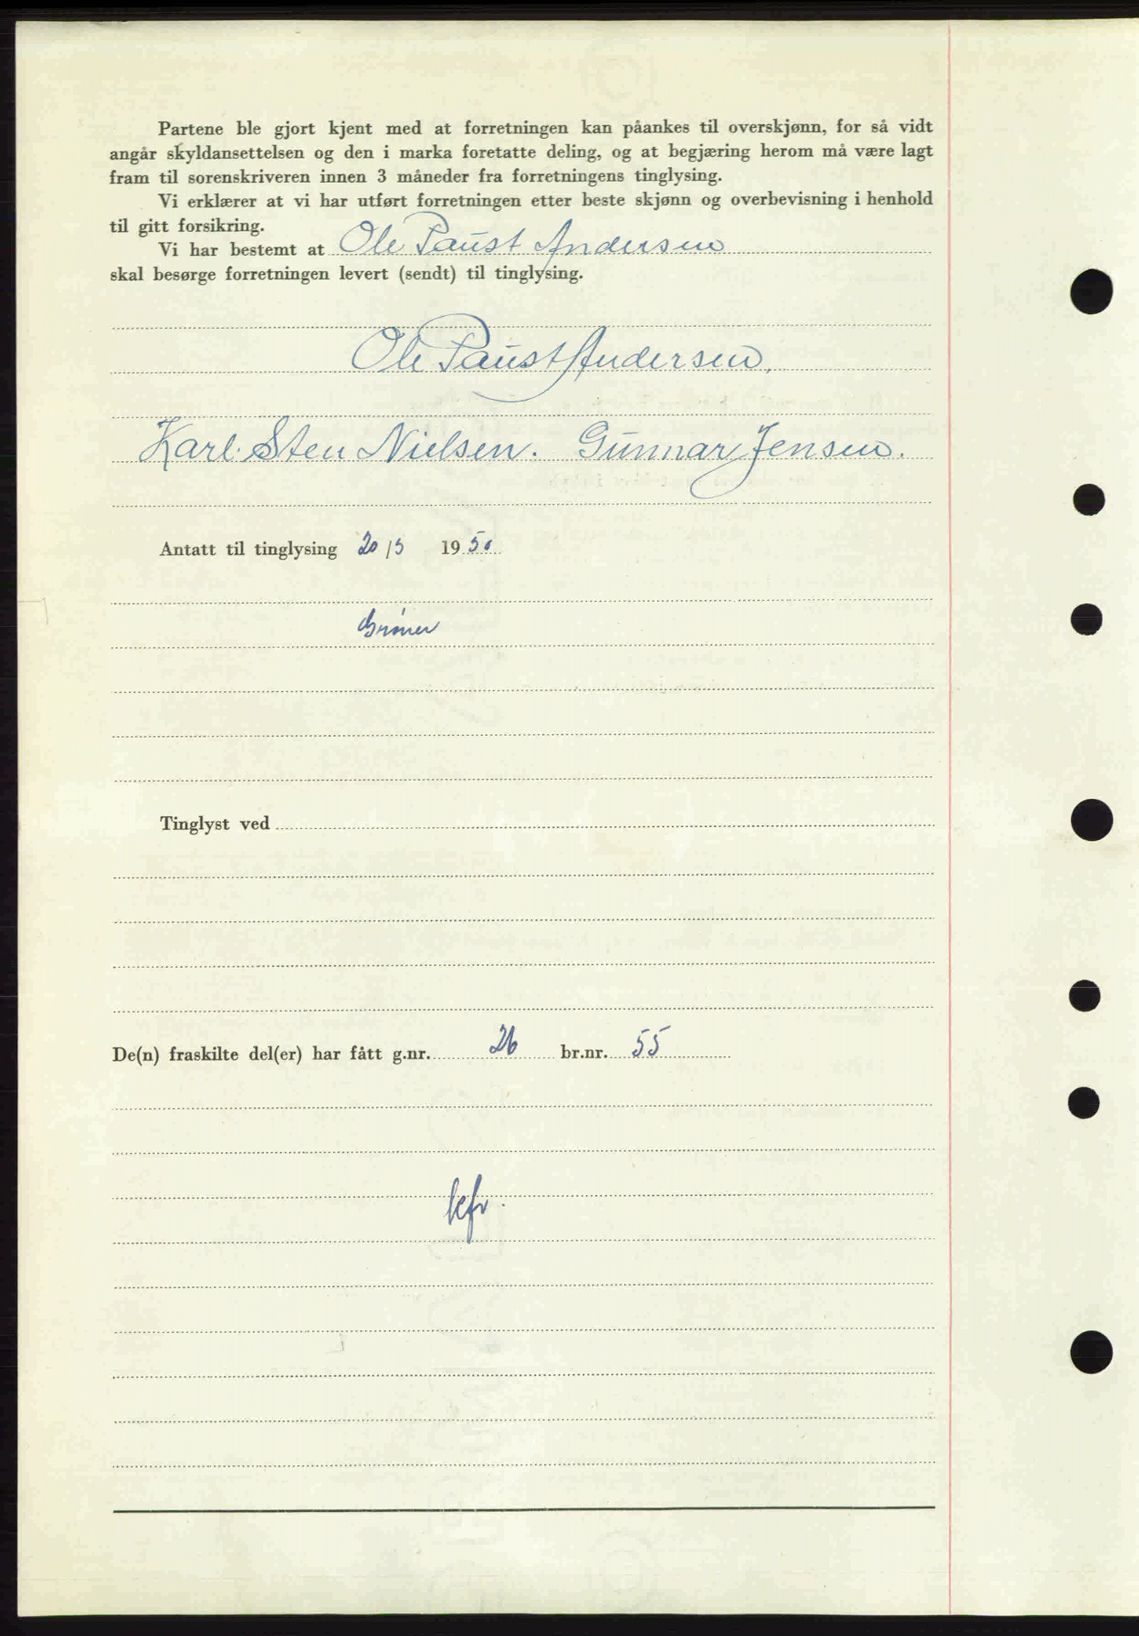 Partene ble gjort kjent med at forretningen kan påankes til overskjønn, for så vidt
angår skyldansettelsen og den i marka foretatte deling, og at begjæring herom må være lagt
fram til sorenskriveren innen 3 måneder fra forretningens tinglysing.
Vi erklærer at vi har utført forretningen etter beste skjønn og overbevisning i henhold
til gitt forsikring.
Vi har bestemt at Ole Paust Andersen
skal besørge forretningen levert (sendt) til tinglysing.
Ole Paust Andersen.
Karl. Sten Nielsen. Gunnar Jensen.
Antatt til tinglysing 20/3 1950
Grøner
Tinglyst ved
De(n) fraskilte del(er) har fått g.nr. 26 br.nr. 55
kfr.